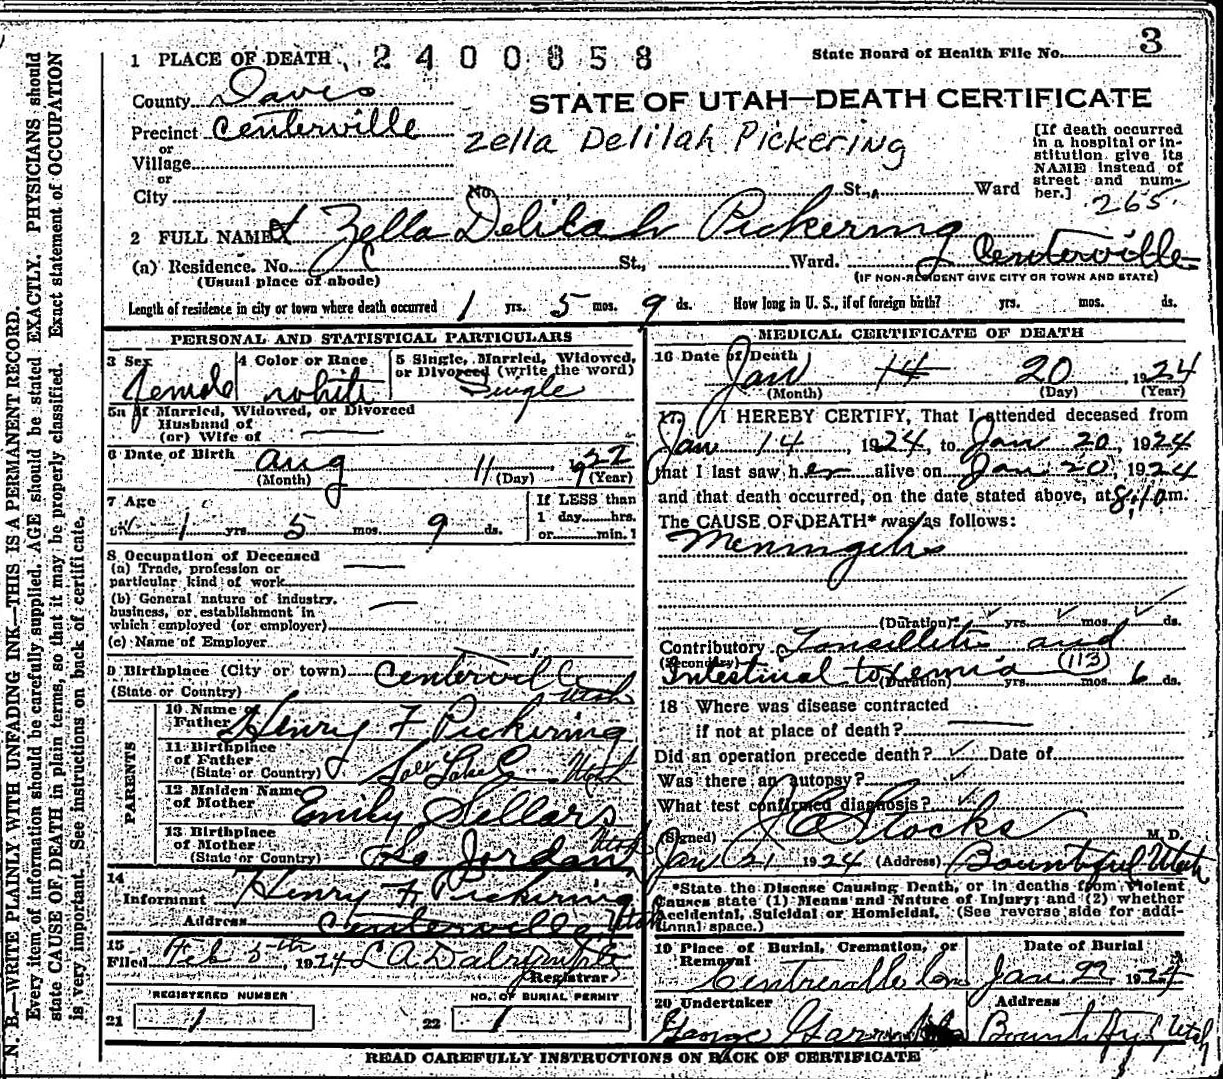 3
1 PLACE OF DEATH 2400858 State Board of Health File No.
County Davis
STATE OF UTAH—DEATH CERTIFICATE
Precinct Centerville
Zella Delilah Pickering
or
Village
or
City No. St., Ward
[If death occurred
in a hospital or in-
stitution give its
NAME instead of
street and num-
ber.]
265
2 FULL NAME Zella Delilah Pickering
(a) Residence. No. St., Ward. Centerville
(Usual place of abode) (IF NON-RESIDENT GIVE CITY OR TOWN AND STATE)
Length of residence in city or town where death occurred 1 yrs. 5 mos. 9 ds. How long in U. S., if of foreign birth? yrs. mos. ds.
PERSONAL AND STATISTICAL PARTICULARS
3 Sex 4 Color or Race 5 Single, Married, Widowed,
or Divorced (write the word)
female white Single
5a If Married, Widowed, or Divorced
Husband of
(or) Wife of
6 Date of Birth Aug 11 1922
(Month) (Day) (Year)
7 Age If LESS than
1 day hrs.
1 yrs. 5 mos. 9 ds. or min.?
8 Occupation of Deceased
(a) Trade, profession or
particular kind of work
(b) General nature of industry.
business, or establishment in
which employed (or employer)
(c) Name of Employer
9 Birthplace (City or town) Centerville
(State or Country) Utah
PARENTS
10 Name of
Father Henry F Pickering
11 Birthplace
of Father
(State or Country) Salt Lake C Utah
12 Maiden Name
of Mother Emily Sellars
13 Birthplace
of Mother
(State or Country) So Jordan Utah
14
Informant Henry F. Pickering
Address Centerville Utah
15
Filed Feb 5th, 1924 L A Dalrymple
Registrar
REGISTERED NUMBER NO. OF BURIAL PERMIT
21 1 22 1
MEDICAL CERTIFICATE OF DEATH
16 Date of Death
Jan 14 20 1924
(Month) (Day) (Year)
17 I HEREBY CERTIFY, That I attended deceased from
Jan 14, 1924, to Jan 20, 1924
that I last saw her alive on Jan 20, 1924
and that death occurred, on the date stated above, at 8:10 m.
The CAUSE OF DEATH* was as follows:
Meningitis
(Duration) yrs. mos. ds.
Contributory Tonsillitis and
(Secondary)
Intestinal toxemia (113)
(Duration) yrs. mos. 6 ds.
18 Where was disease contracted
if not at place of death?
Did an operation precede death? Date of
Was there an autopsy?
What test confirmed diagnosis?
(Signed) J C Stocks M. D.
Jan 21 1924 (Address) Bountiful Utah
*State the Disease Causing Death, or in deaths from Violent
Causes state (1) Means and Nature of Injury; and (2) whether
Accidental, Suicidal or Homicidal. (See reverse side for addi-
tional space.)
19 Place of Burial, Cremation, or
Removal Date of Burial
Centreville Cem Jan 22 1924
20 Undertaker Address
George Bountiful Utah
READ CAREFULLY INSTRUCTIONS ON BACK OF CERTIFICATE
N. B.—WRITE PLAINLY WITH UNFADING INK—THIS IS A PERMANENT RECORD.
Every item of information should be carefully supplied. AGE should be stated EXACTLY. PHYSICIANS should
state CAUSE OF DEATH in plain terms, so that it may be properly classified. Exact statement of OCCUPATION
is very important. See instructions on back of certificate.